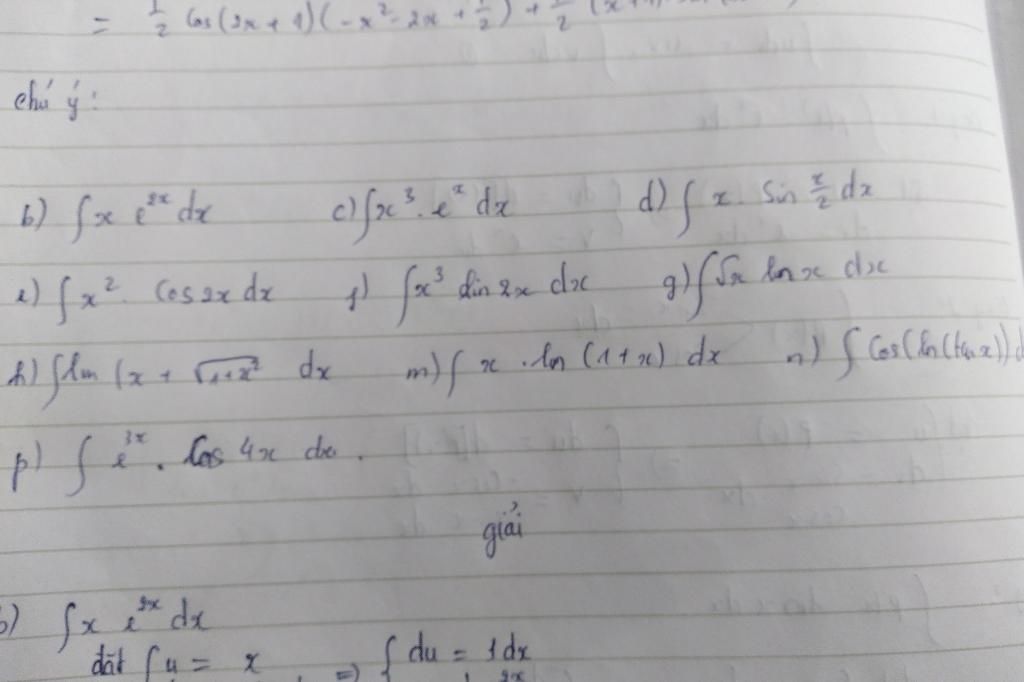 = 1/2 cos(2x + 1)(-x² - 2x + 1/2) + 1/2 (x+1)
chú ý:
b) ∫x e^2x dx c) ∫x³. e^x dx d) ∫ x. sin x/2 dx
e) ∫x². cos2x dx f) ∫x³ sin 2x dx g) ∫√x ln x dx
h) ∫ln (x + √1+x² dx m) ∫ x . ln (1+x) dx n) ∫ cos(ln(tan x)) d
p) ∫ e^3x . cos 4x dx .
giải
b) ∫x e^2x dx
đặt { u = x => { du = 1dx